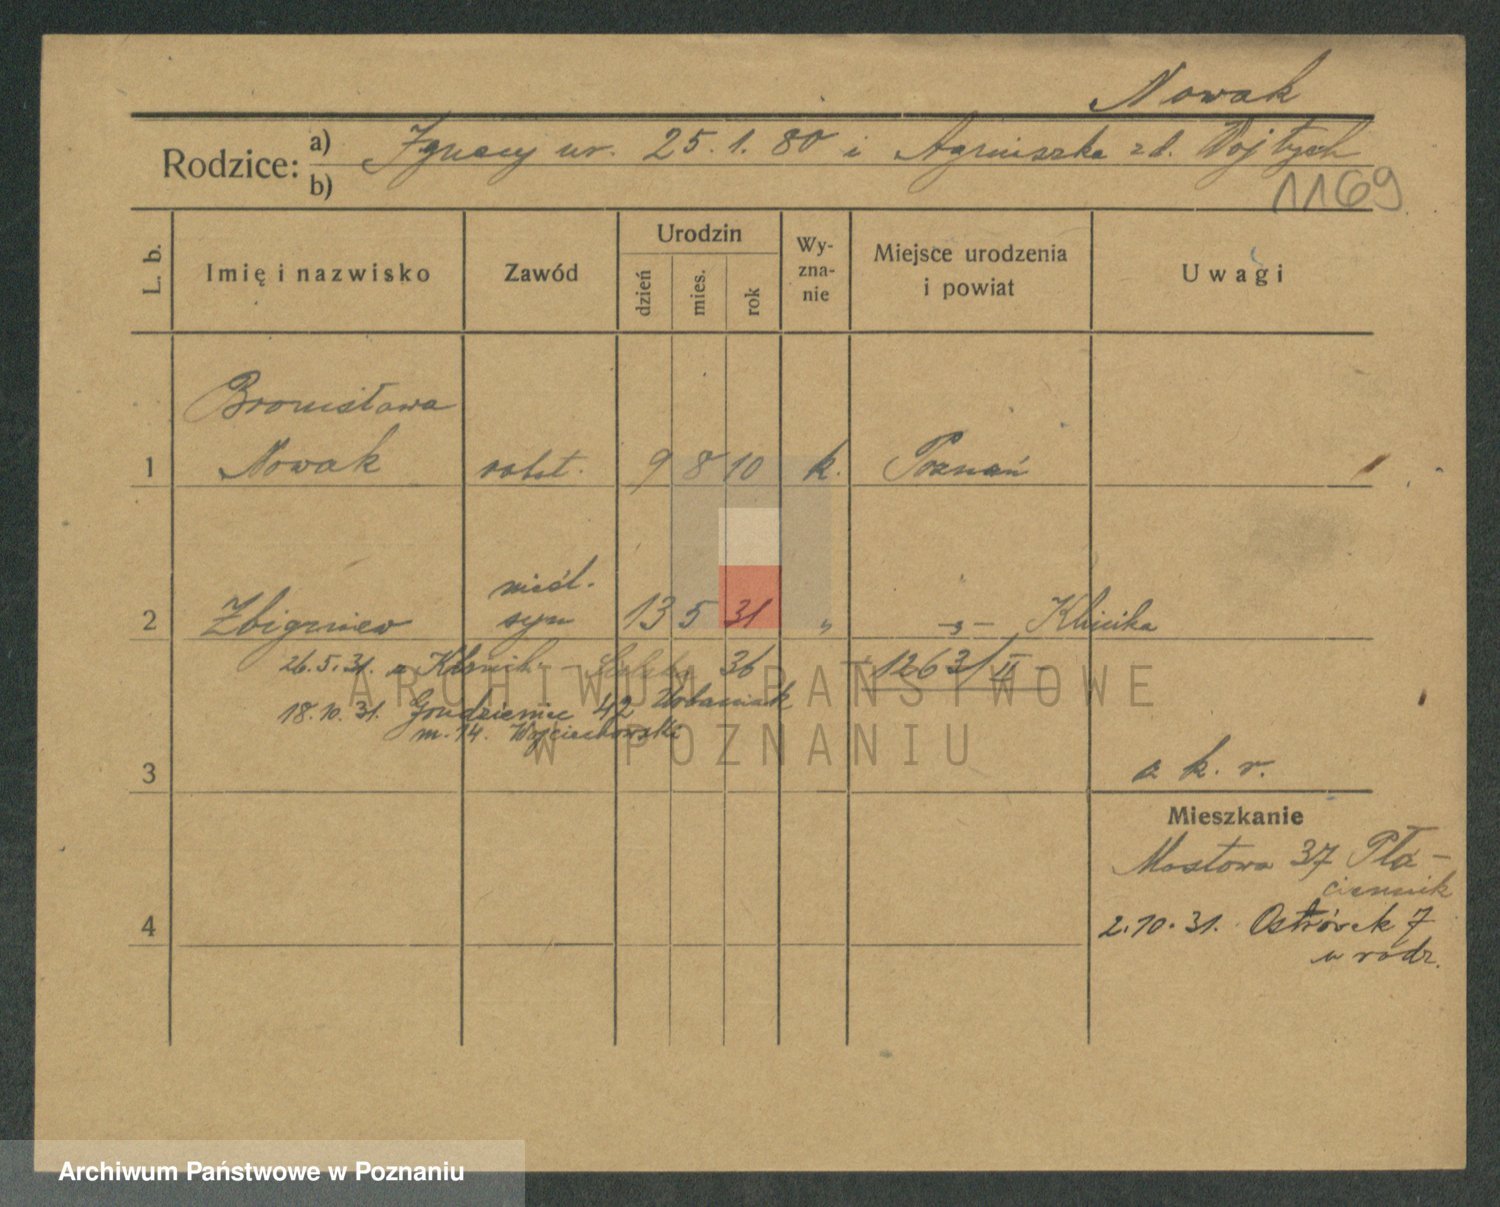 Nowak
Rodzice: a) Ignacy ur. 25.1.80 i Agnieszka zd. Wojtych
b)
1169
L. b. Imię i nazwisko Zawód Urodzin dzień mies. rok Wyznanie Miejsce urodzenia i powiat Uwagi
Bronisława
1 Nowak robot. 9 8 10 k. Poznań
nieśl.
2 Zbigniew syn 13 5 31 „ -„- Klinika
26.5.31. z Klinik 36 1263/II
18.10.31. Grudzieniec 42 Urbaniak
m. 14. Wojciechowski
3 z k. r.
Mieszkanie
Mostowa 37 Pła-
ciennik
4 2.10.31. Ostrówek 7
u rodz.
ARCHIWUM PAŃSTWOWE
W POZNANIU
Archiwum Państwowe w Poznaniu